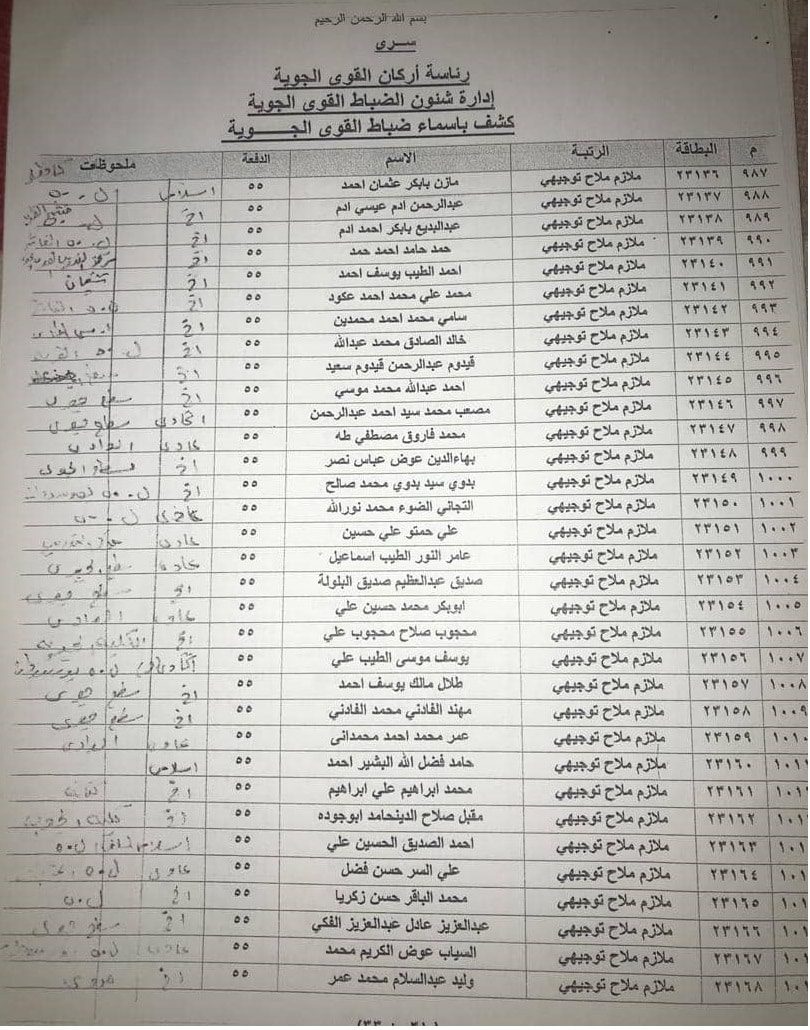 بسم الله الرحمن الرحيم
سري
رئاسة أركان القوى الجوية
إدارة شئون الضباط القوى الجوية
كشف باسماء ضباط القوى الجــــوية
م البطاقة الرتبة الاسم الدفعة ملحوظات
٩٨٧ ٢٣١٣٦ ملازم ملاح توجيهي مازن بابكر عثمان احمد ٥٥ اسلامي
٩٨٨ ٢٣١٣٧ ملازم ملاح توجيهي عبدالرحمن ادم عيسي ادم ٥٥ اخ
٩٨٩ ٢٣١٣٨ ملازم ملاح توجيهي عبدالبديع بابكر احمد ادم ٥٥ اخ
٩٩٠ ٢٣١٣٩ ملازم ملاح توجيهي حمد حامد احمد حمد ٥٥ اخ
٩٩١ ٢٣١٤٠ ملازم ملاح توجيهي احمد الطيب يوسف احمد ٥٥ اخ
٩٩٢ ٢٣١٤١ ملازم ملاح توجيهي محمد علي محمد احمد عكود ٥٥ اخ
٩٩٣ ٢٣١٤٢ ملازم ملاح توجيهي سامي محمد احمد محمدين ٥٥ اخ
٩٩٤ ٢٣١٤٣ ملازم ملاح توجيهي خالد الصادق محمد عبدالله ٥٥ اخ
٩٩٥ ٢٣١٤٤ ملازم ملاح توجيهي قيدوم عبدالرحمن قيدوم سعيد ٥٥ اخ
٩٩٦ ٢٣١٤٥ ملازم ملاح توجيهي احمد عبدالله محمد موسي ٥٥ اخ
٩٩٧ ٢٣١٤٦ ملازم ملاح توجيهي مصعب محمد سيد احمد عبدالرحمن ٥٥
٩٩٨ ٢٣١٤٧ ملازم ملاح توجيهي محمد فاروق مصطفي طه ٥٥ عادي
٩٩٩ ٢٣١٤٨ ملازم ملاح توجيهي بهاءالدين عوض عباس نصر ٥٥ اخ
١٠٠٠ ٢٣١٤٩ ملازم ملاح توجيهي بدوي سيد بدوي محمد صالح ٥٥ اخ
١٠٠١ ٢٣١٥٠ ملازم ملاح توجيهي التجاني الضوء محمد نورالله ٥٥ عادي
١٠٠٢ ٢٣١٥١ ملازم ملاح توجيهي علي حمتو علي حسين ٥٥ عادي
١٠٠٣ ٢٣١٥٢ ملازم ملاح توجيهي عامر النور الطيب اسماعيل ٥٥ عادي
١٠٠٤ ٢٣١٥٣ ملازم ملاح توجيهي صديق عبدالعظيم صديق البلولة ٥٥ اخ
١٠٠٥ ٢٣١٥٤ ملازم ملاح توجيهي ابوبكر محمد حسين علي ٥٥ عادي
١٠٠٦ ٢٣١٥٥ ملازم ملاح توجيهي محجوب صلاح محجوب علي ٥٥ اخ
١٠٠٧ ٢٣١٥٦ ملازم ملاح توجيهي يوسف موسى الطيب علي ٥٥
١٠٠٨ ٢٣١٥٧ ملازم ملاح توجيهي طلال مالك يوسف احمد ٥٥ اخ
١٠٠٩ ٢٣١٥٨ ملازم ملاح توجيهي مهند الفادني محمد الفادني ٥٥ اخ
١٠١٠ ٢٣١٥٩ ملازم ملاح توجيهي عمر محمد احمد محمدانى ٥٥ عادي
١٠١ ٢٣١٦٠ ملازم ملاح توجيهي حامد فضل الله البشير احمد ٥٥ اسلامي
١٠١ ٢٣١٦١ ملازم ملاح توجيهي محمد ابراهيم علي ابراهيم ٥٥ اخ
١٠١ ٢٣١٦٢ ملازم ملاح توجيهي مقبل صلاح الدينحامد ابوجوده ٥٥ اخ
١٠١ ٢٣١٦٣ ملازم ملاح توجيهي احمد الصديق الحسين علي ٥٥
١٠١ ٢٣١٦٤ ملازم ملاح توجيهي علي السر حسن فضل ٥٥ عادي
١٠١ ٢٣١٦٥ ملازم ملاح توجيهي محمد الباقر حسن زكريا ٥٥ اخ
١٠١ ٢٣١٦٦ ملازم ملاح توجيهي عبدالعزيز عادل عبدالعزيز الفكي ٥٥ اخ
١٠١ ٢٣١٦٧ ملازم ملاح توجيهي السياب عوض الكريم محمد ٥٥ عادي
١٠١ ٢٣١٦٨ ملازم ملاح توجيهي وليد عبدالسلام محمد عمر ٥٥ اخ